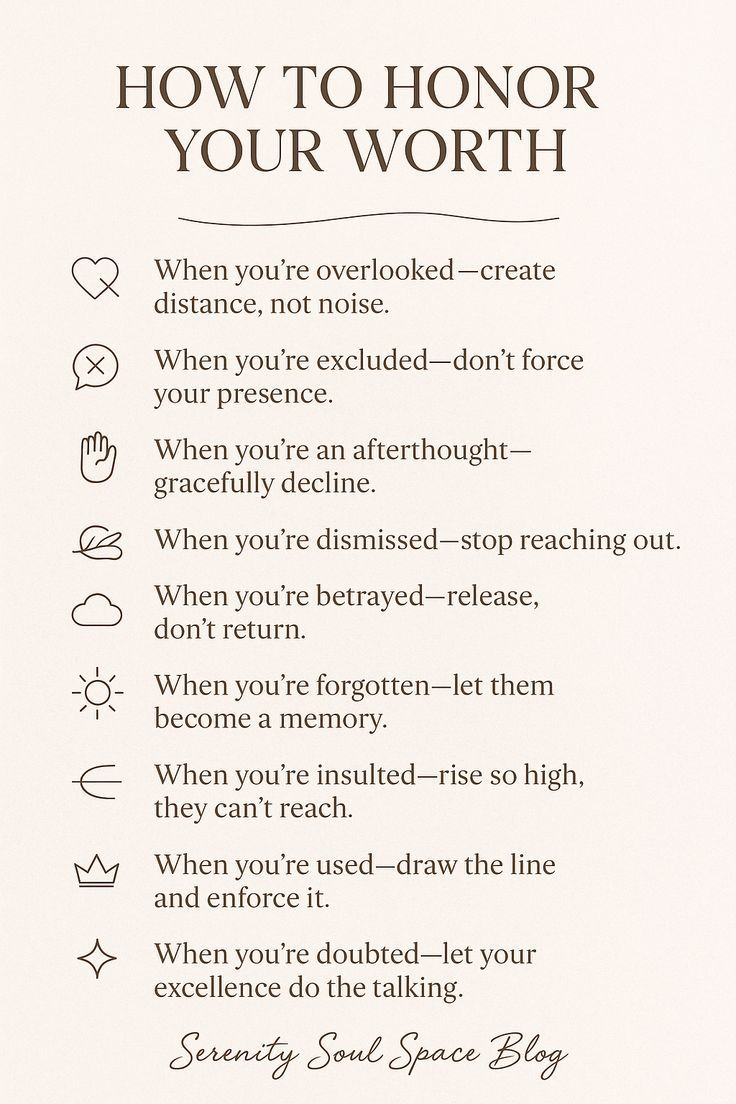 HOW TO HONOR
YOUR WORTH
When you’re overlooked—create
distance, not noise.
When you’re excluded—don’t force
your presence.
When you’re an afterthought—
gracefully decline.
When you’re dismissed—stop reaching out.
When you’re betrayed—release,
don’t return.
When you’re forgotten—let them
become a memory.
When you’re insulted—rise so high,
they can’t reach.
When you’re used—draw the line
and enforce it.
When you’re doubted—let your
excellence do the talking.
Serenity Soul Space Blog